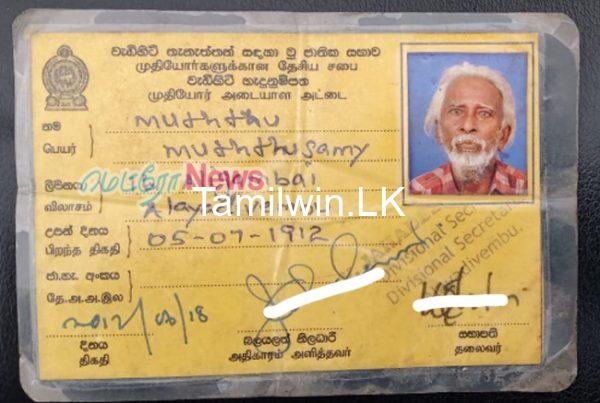 වැඩිහිටි තැනැත්තන් සඳහා වූ ජාතික සභාව
முதியோர்களுக்கான தேசிய சபை
වැඩිහිටි හැඳුනුම්පත
முதியோர் அடையாள அட்டை
නම
பெயர்
muththu
muththusamy
ලිපිනය
விலாசம்
மெட்ரோ News
Tamilwin.LK
උපන් දිනය
பிறந்த திகதி
05-07-1912
ජා.හැ. අංකය
தே.அ.அ.இல
2012/06/18
Divisional Secre
Divisional Secretar
දිනය
திகதி
බලයලත් නිලධාරී
அதிகாரம் அளித்தவர்
සභාපති
தலைவர்